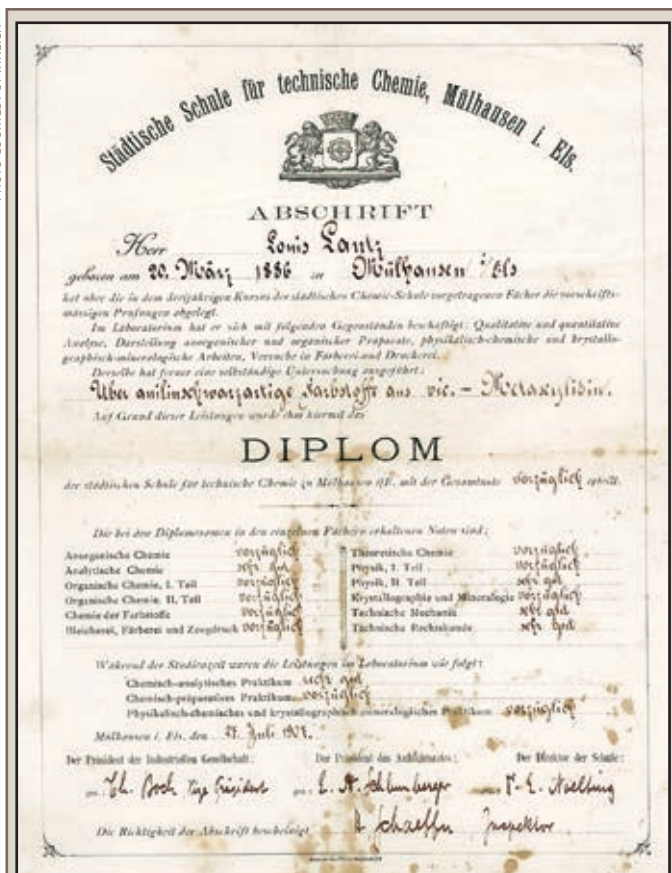 Städtische Schule für technische Chemie, Mülhausen i. Els.
ABSCHRIFT
Herr Louis Lantz
geboren am 20. März 1886 in Mülhausen i/Els
hat über die in dem dreijährigen Kurses der städtischen Chemie-Schule vorgetragenen Fächer die vorschrifts-
mässigen Prüfungen abgelegt.
Im Laboratorium hat er sich mit folgenden Gegenständen beschäftigt: Qualitative und quantitative
Analyse, Darstellung anorganischer und organischer Präparate, physikalisch-chemische und krystallo-
graphisch-mineralogische Arbeiten, Versuche in Färberei und Druckerei.
Derselbe hat ferner eine selbständige Untersuchung ausgeführt:
Über anilinschwarzartige Farbstoffe aus vic. - Metaxylidin.
Auf Grund dieser Leistungen wurde ihm hiermit das
DIPLOM
der städtischen Schule für technische Chemie zu Mülhausen i/E. mit der Gesamtnote vorzüglich erteilt.
Die bei den Diplomexamen in den einzelnen Fächern erhaltenen Noten sind:
Anorganische Chemie vorzüglich Theoretische Chemie vorzüglich
Analytische Chemie sehr gut Physik, I. Teil vorzüglich
Organische Chemie, I. Teil vorzüglich Physik, II Teil sehr gut
Organische Chemie, II. Teil vorzüglich Krystallographie und Mineralogie vorzüglich
Chemie der Farbstoffe vorzüglich Technische Mechanik sehr gut
Bleicherei, Färberei und Zeugdruck vorzüglich Technische Rechtskunde sehr gut
Während der Studienzeit waren die Leistungen im Laboratorium wie folgt:
Chemisch-analytisches Praktikum sehr gut
Chemisch-präparatives Praktikum vorzüglich
Physikalisch-chemisches und krystallographisch-mineralogisches Praktikum vorzüglich
Mülhausen i. Els. den Juli
Der Präsident der Industriellen Gesellschaft: Der Präsident des Der Direktor der Schule:
Th. Boch Vize Präsident E. A. Schlumberger E. Noelting
Die Richtigkeit der Abschrift bescheinigt Schaeffer Inspektor